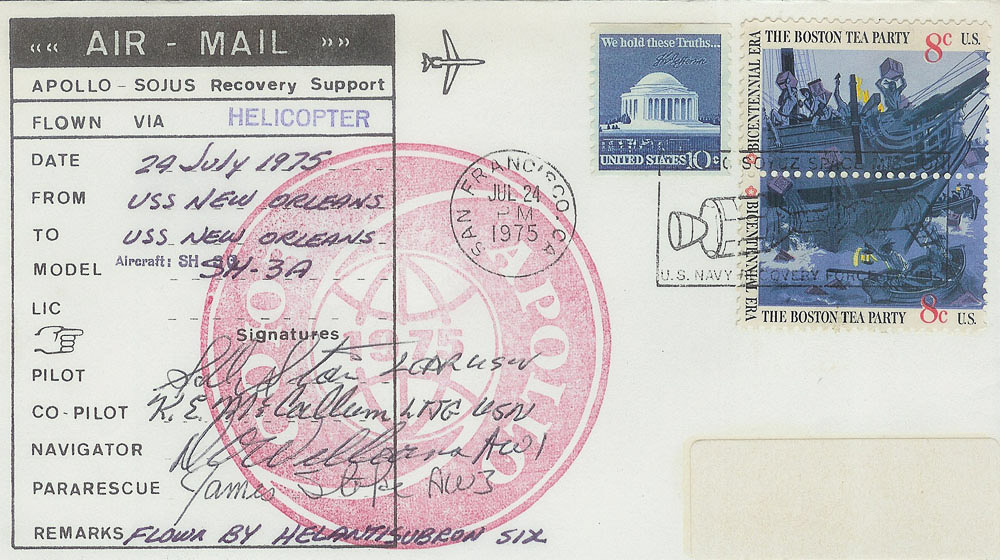 ‹‹ ‹‹ AIR - MAIL ›› ››
APOLLO - SOJUS Recovery Support
FLOWN VIA HELICOPTER
DATE 24 July 1975
FROM USS NEW ORLEANS
TO USS NEW ORLEANS
Aircraft: SH
MODEL SH-3A
LIC
Signatures
PILOT
CO-PILOT R.E. McCallum LTJG USN
NAVIGATOR AW1
PARARESCUE James AW3
REMARKS FLOWN BY HELANTISUBRON SIX
APOLLO
1975
SAN FRANCISCO, CA
JUL 24
PM
1975
We hold these Truths...
UNITED STATES 10c
THE BOSTON TEA PARTY 8c U.S.
BICENTENNIAL ERA
SOYUZ SPACE
U.S. NAVY RECOVERY FORCE
BICENTENNIAL ERA
THE BOSTON TEA PARTY 8c U.S.